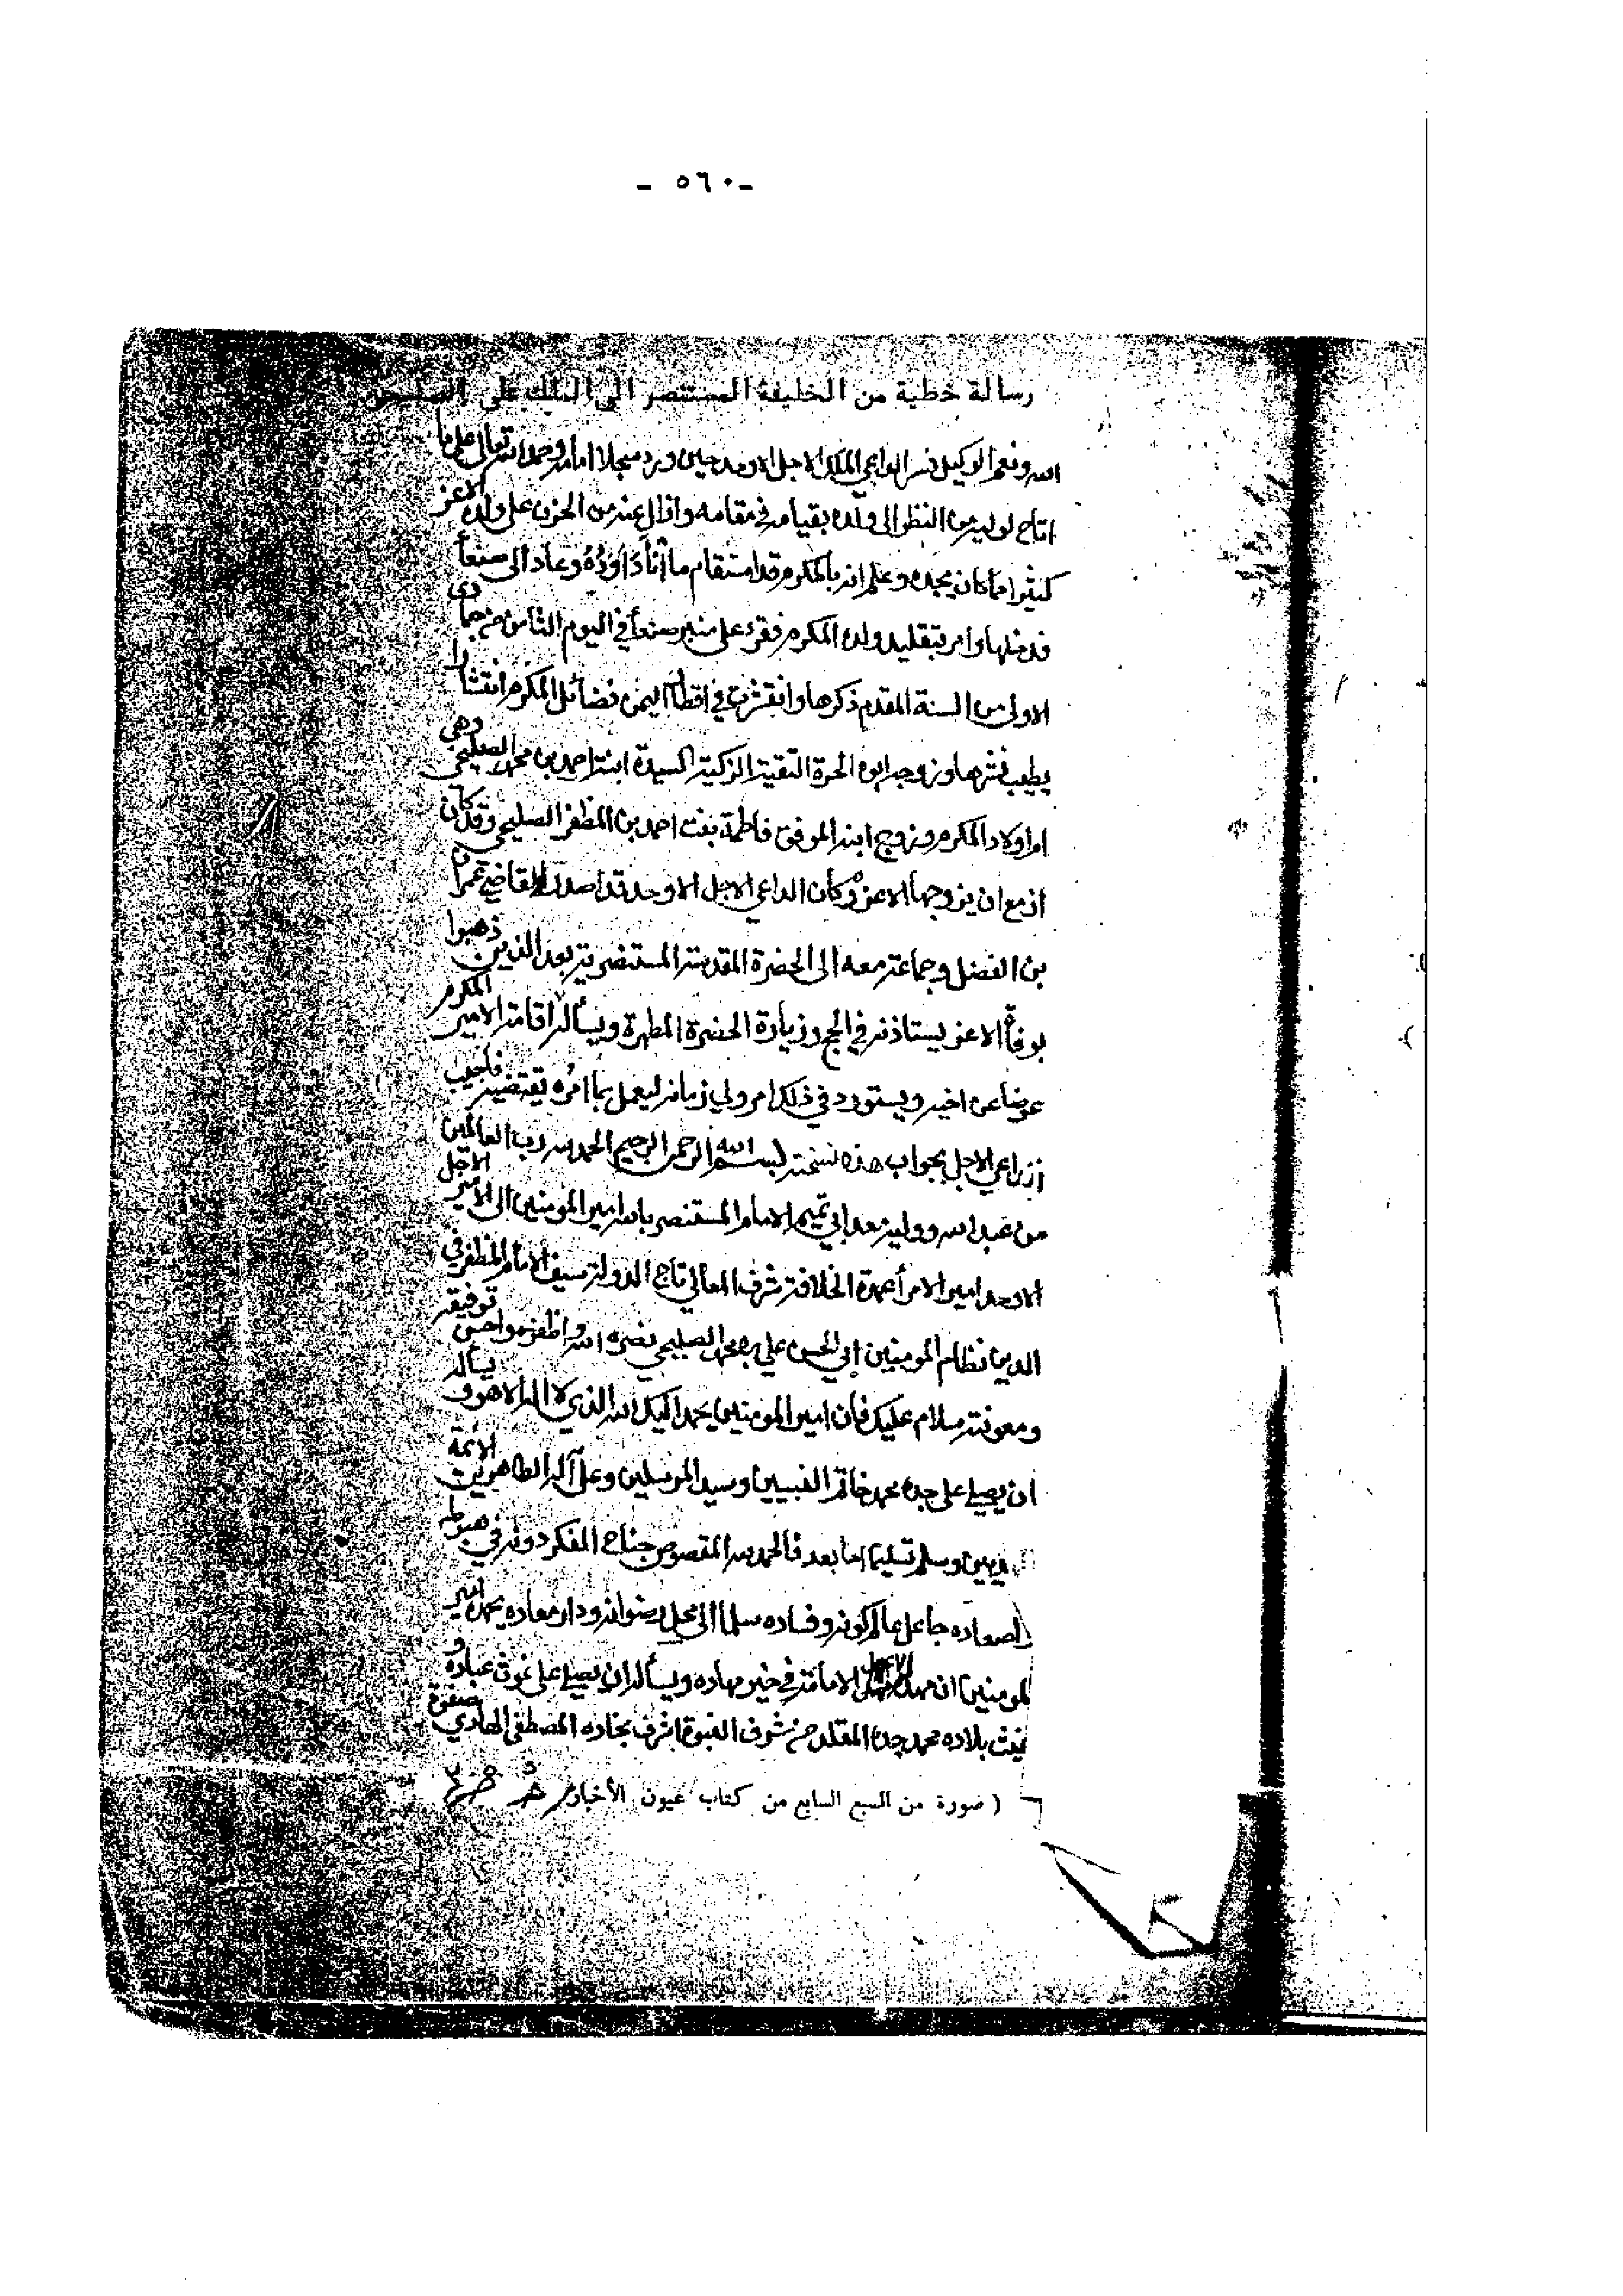 - ٥٦٠ -
رسالة خطية من الخليفة المستنصر الى الملك على الصليحى
الله ونعم الوكيل فسر الداعي الملك الاجل الاوحد حين ورد سجلا امامه وحمد الله تعالى على ما
اتاح لوليه من النظر الى ولده بقيامه في مقامه وازال عنه من الحزن على ولده الاعز
كثيرا مما كان يجده وعلم انه بالمكرم قد استقام ما أناد اوده وعاد الى صنعأ
فدخلها وامر بتقليد ولده المكرم فقرء على منبر صنعأ في اليوم الثامن من جمادى
الاولى من السنة المقدم ذكرها وانتشرت في اقطار اليمن فضائل المكرم انتشارا
يطيب نشرها وزوجه ابوه الحرة التقية الزكية السيدة ابنة احمد بن محمد الصليحي وهي
ام اولاد المكرم وزوج ابنه الموفق فاطمة بنت احمد بن المظفر الصليحي وقد كان
ازمع ان يزوجها الاعز وكان الداعي الاجل الاوحد قد اصدر القاضي عمران
بن الفضل وجماعة معه الى الحضرة المقدسة المستنصرية بعد الذين ذهبوا
بوفأة الاعز يستاذنه في الحج وزيارة الحضرة المطهرة ويسأله اقامة الامير المكرم
عوضا عن اخيه ويستورد في ذلك امر ولي زمانه ليعمل بما امره يقتضيه فاجيب
الداعي الاجل بجواب هذه نسخته بسم الله الرحمن الرحيم الحمد لله رب العالمين
من عبد الله ووليه معد ابي تميم الامام المستنصر بالله امير المؤمنين الى الامير الاجل
الاوحد امير الامرأ عمدة الخلافة شرف المعالي تاج الدولة سيف الامام المظفر في
الدين نظام المومنين ابي الحسن علي بن محمد الصليحي نصره الله واظفره واحسن توفيقه
ومعونته سلام عليك فان امير المومنين يحمد اليك الله الذي لا اله الا هو ويسأله
ان يصلي على جده محمد خاتم النبيين وسيد المرسلين وعلى آله الطاهرين الائمة
المهديين وسلم تسليما اما بعد فالحمد لله المقصوص جناح الفكر دونه في هبوطه
واصعاده جاعل عالم كونه وفساده سلما الى محل رضوانه ودار معاده يحمده امير
المومنين ان مهد له الامامة في خير مهاده ويسأله ان يصلي على غوث عباده و
غيث بلاده محمد جده المقلد من شرف النبوة اشرف نجاده المصطفى الهادي صفوة
( صورة من السبع السابع من كتاب عيون الأخبار